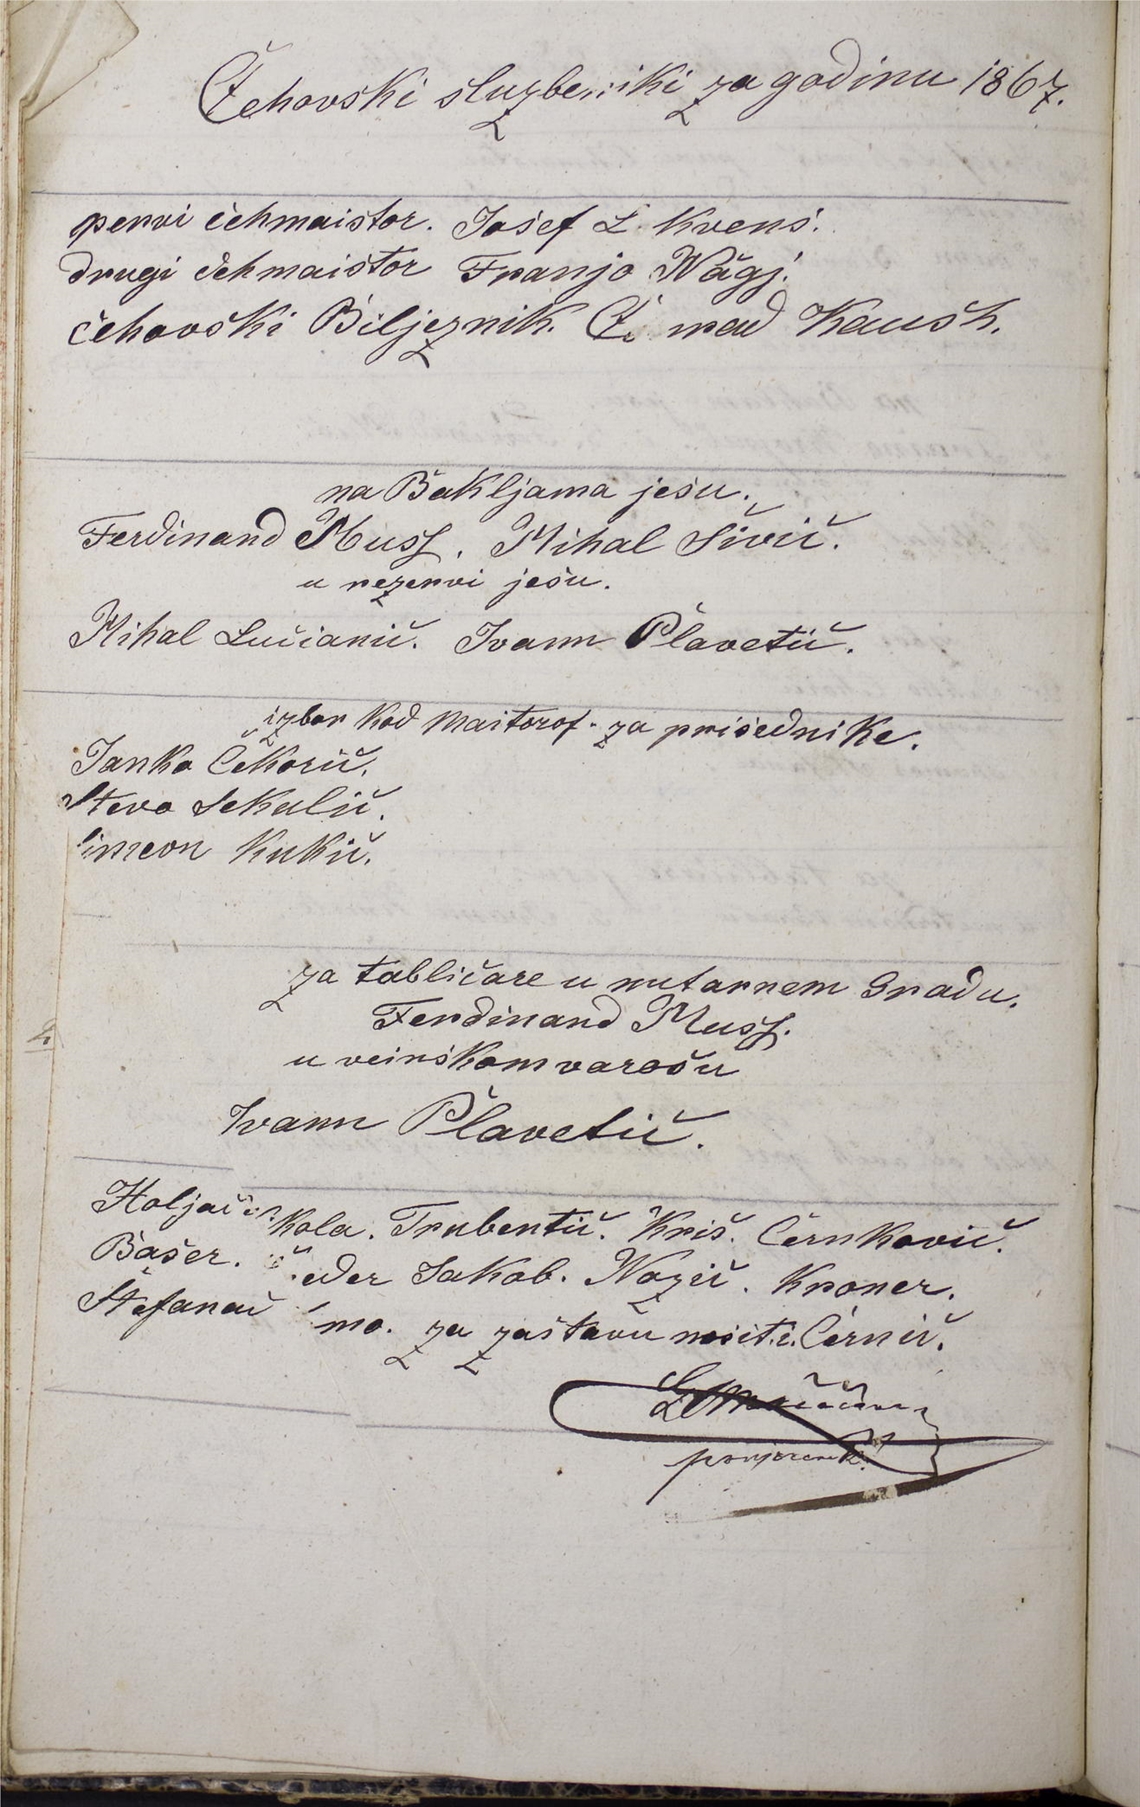 Čehovski službeniki za godinu 1867.
pervi čehmaistor. Josef L. Kvens.
drugi čehmaistor Franjo Wagj.
čehovski Biljeznik. Č. mad Kaush.
na Bakljama jesu.
Ferdinand Muss. Mihal Sivič.
u rezervi jesu.
Mihal Lučianič. Ivann Plavetič.
izbor kod Maitorof. za prisednike.
Janko Čekorič.
Stevo Sekulič.
Simeon Kukič.
za tabličare u nutarnem Gradu.
Ferdinand Muss.
u veinskom varošu
Ivann Plavetič.
Holjač Kola. Trubentič. Kriš. Černkovič.
Bašer. eder Jakob. Nozič. Kroner.
Štefanac mo. za zastavu nosit.i. Černič.